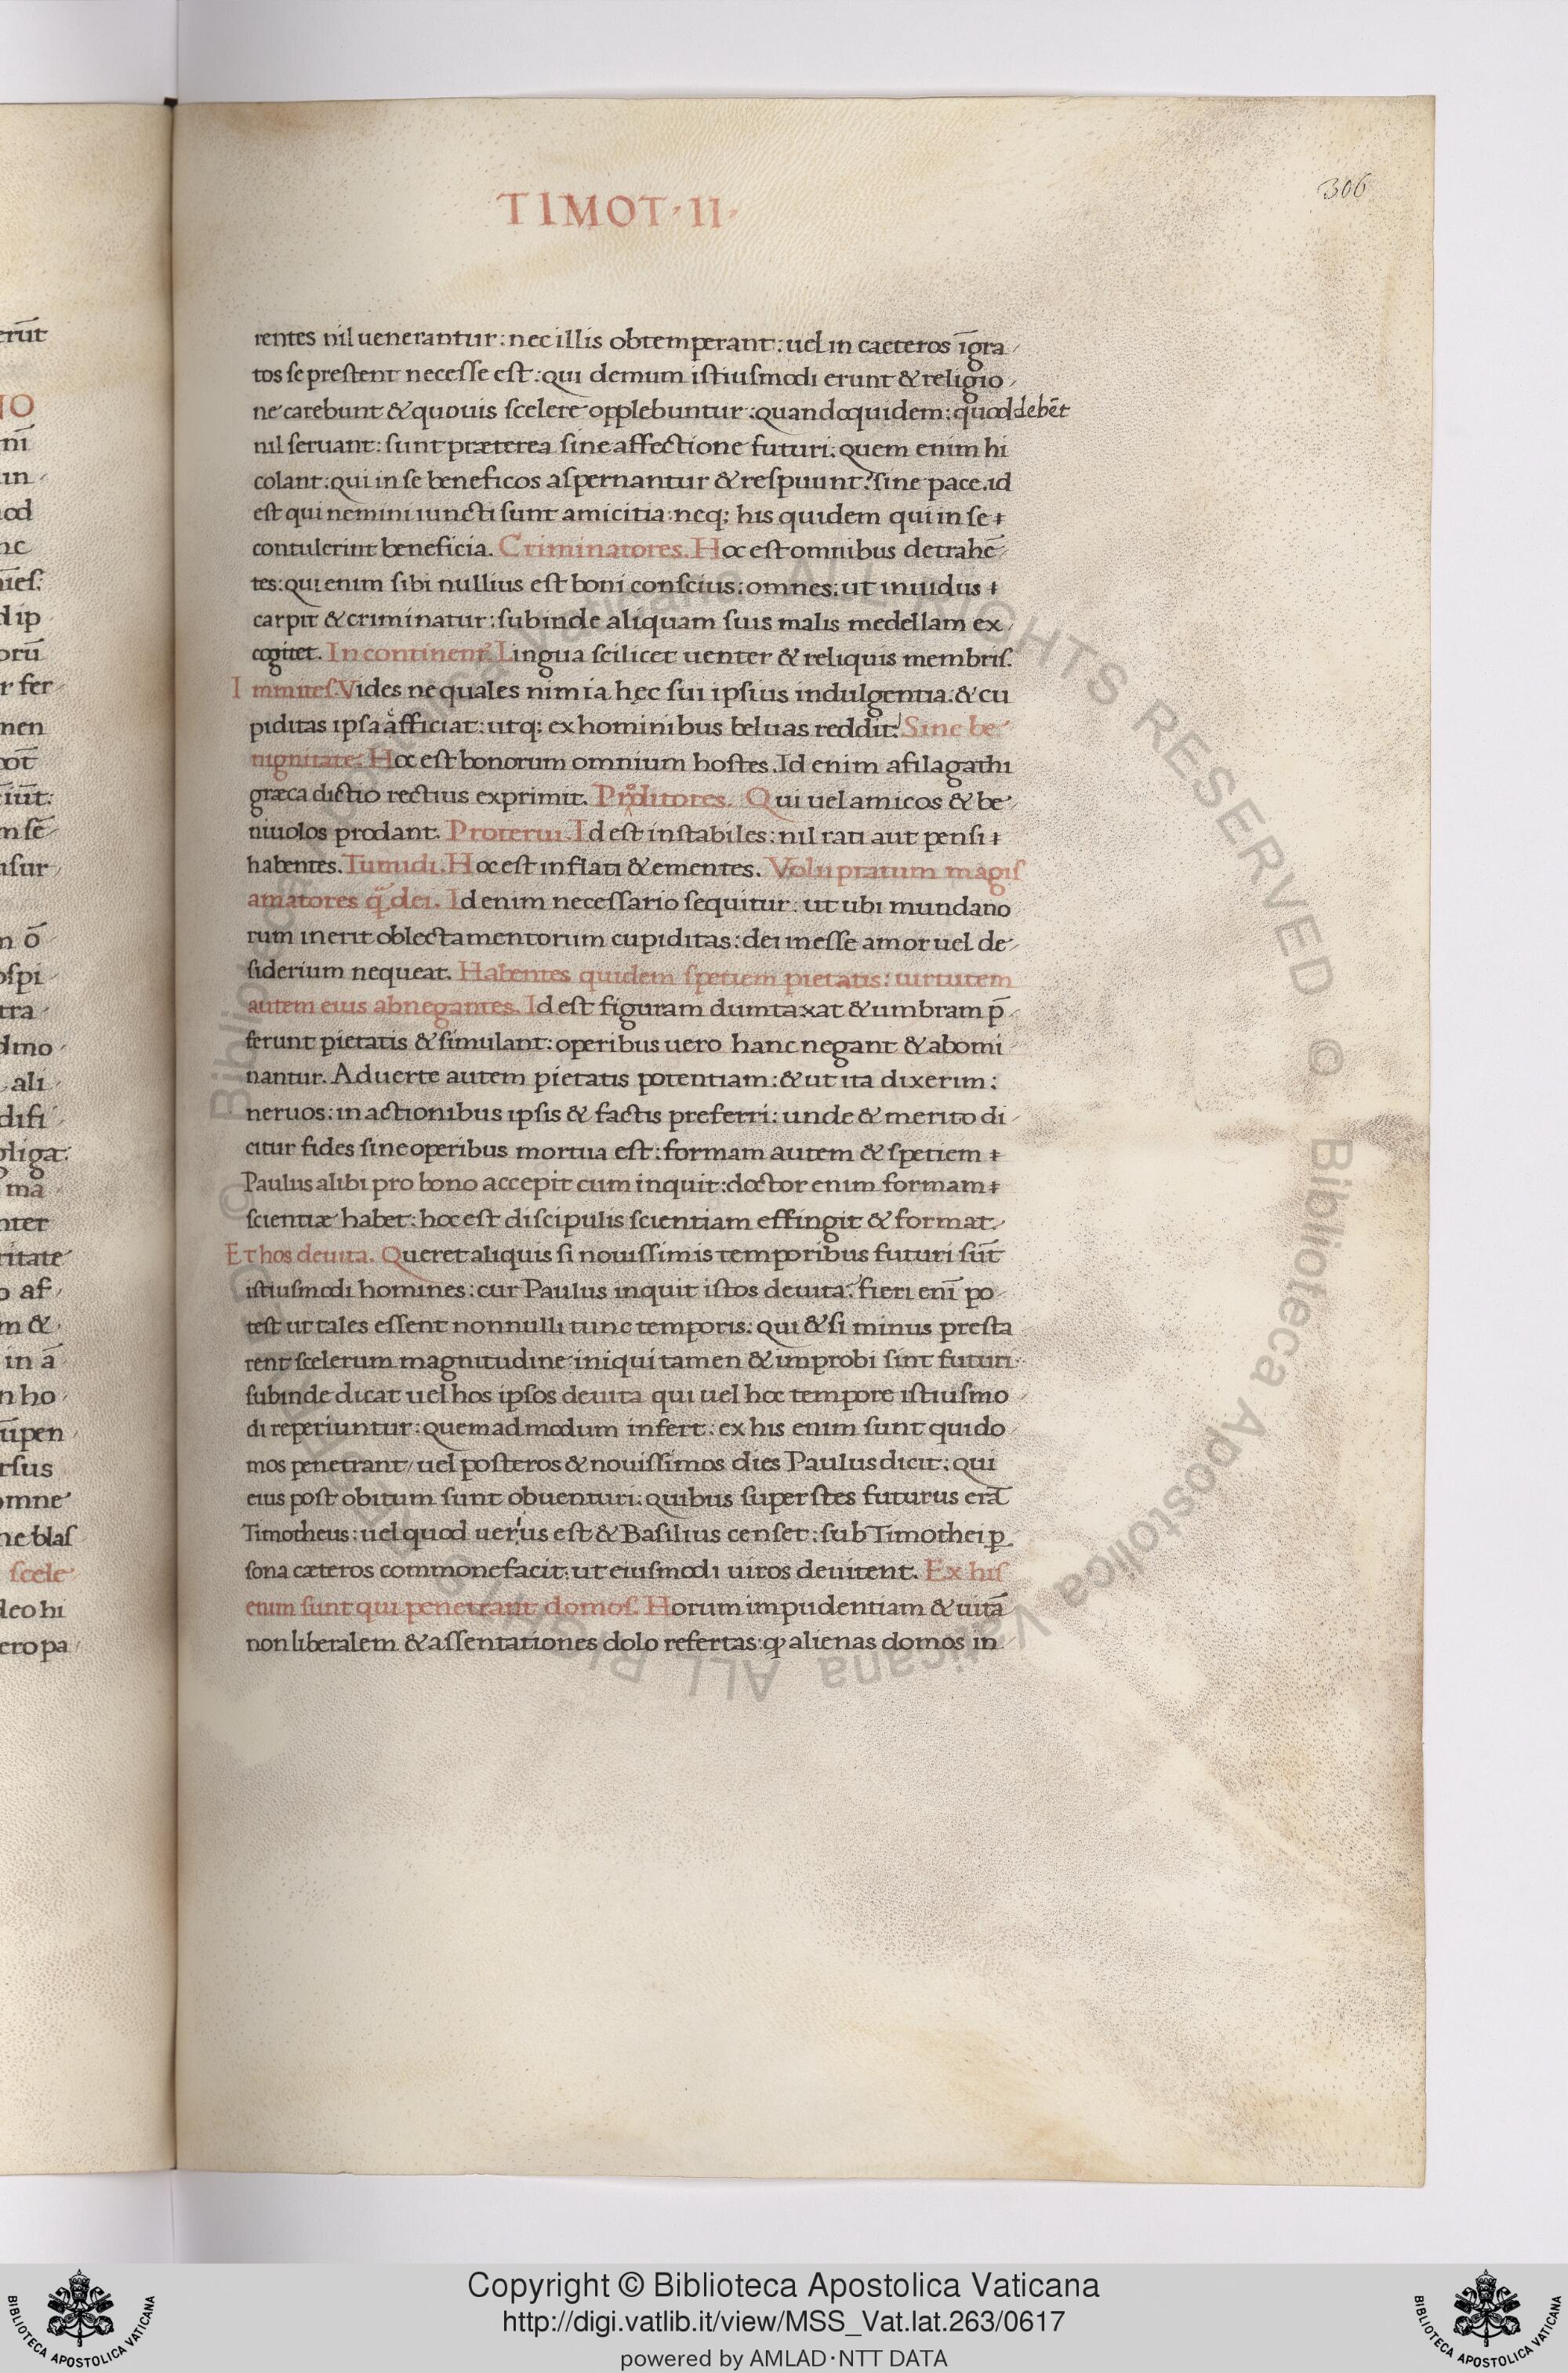 TIMOT·II·
306
rentes nil uenerantur: nec illis obtemperant: uel in caeteros īgra
tos se prestent necesse est: qui demum istiusmodi erunt & religio
ne carebunt & quouis scelere opplebuntur: quandoquidem: quod debēt
nil seruant: sunt præterea sine affectione futuri. quem enim hi
colant: qui in se beneficos aspernantur & respuunt? sine pace. id
est qui nemini iuncti sunt amicitia: neq; his quidem qui in se
contulerint beneficia. Criminatores. Hoc est omnibus detrahē
tes: qui enim sibi nullius est boni conscius: omnes: ut inuidus
carpit & criminatur: subinde aliquam suis malis medellam ex
cogitet. Incontinent. Lingua scilicet uenter & reliquis membris.
Immites. Vides ne quales nimia hęc sui ipsius indulgentia: & cu
piditas ipsa afficiat: utq; ex hominibus beluas reddit. Sine be
nignitate. Hoc est bonorum omnium hostes. Id enim afilagathi
græca dictio rectius exprimit. Proditores. Qui uel amicos & be
niuolos prodant. Proterui. Id est instabiles: nil rati aut pensi
habentes. Tumidi. Hoc est inflati & ementes. Voluptatum magis
amatores q̈ dei. Id enim necessario sequitur: ut ubi mundano
rum inerit oblectamentorum cupiditas: dei inesse amor uel de
siderium nequeat. Habentes quidem spetiem pietatis: uirtutem
autem eius abnegantes. Id est figuram dumtaxat & umbram p̄
ferunt pietatis & simulant: operibus uero hanc negant & abomi
nantur. Aduerte autem pietatis potentiam: & ut ita dixerim:
neruos: in actionibus ipsis & factis preferri: unde & merito di
citur fides sine operibus mortua est: formam autem & spetiem
Paulus alibi pro bono accepit cum inquit: doctor enim formam
scientiæ habet: hoc est discipulis scientiam effingit & format.
Et hos deuita. Queret aliquis si nouissimis temporibus futuri sūt
istiusmodi homines: cur Paulus inquit istos deuita? fieri enī po
test ut tales essent nonnulli tunc temporis: qui & si minus presta
rent scelerum magnitudine iniqui tamen & improbi sint futuri
subinde dicat uel hos ipsos deuita qui uel hoc tempore istiusmo
di reperiuntur: quemadmodum infert: ex his enim sunt qui do
mos penetrant/ uel posteros & nouissimos dies Paulus dicit: qui
eius post obitum sunt obuenturi: quibus superstes futurus erāt
Timotheus: uel quod uerius est & Basilius censet: sub Timothei ꝑ
sona cæteros commonefacit: ut eiusmodi uiros deuitent. Ex his
enim sunt qui penetrant domos. Horum impudentiam & uitā
non liberalem & assentationes dolo refertas: ꝙ alienas domos in
Copyright © Biblioteca Apostolica Vaticana
http://digi.vatlib.it/view/MSS_Vat.lat.263/0617
powered by AMLAD·NTT DATA